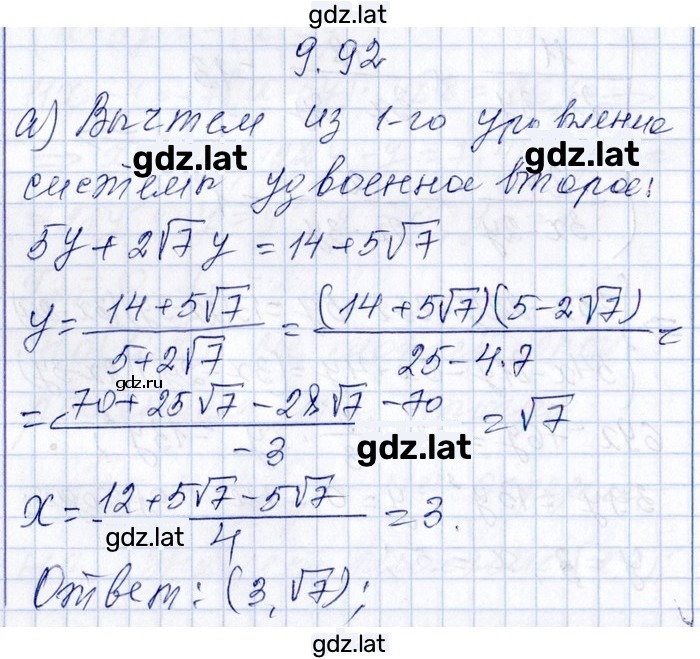 gdz.lat
9.92
а) Вычтем из 1-го уравнение
gdz.lat gdz.lat
системы удвоенное второе:
5y + 2√7 y = 14 + 5√7
y = (14 + 5√7)/(5 + 2√7) = ((14 + 5√7)(5 - 2√7))/(25 - 4·7) =
gdz.ru
= (70 + 25√7 - 28√7 - 70)/(-3) = √7
gdz.lat
x = (12 + 5√7 - 5√7)/4 = 3.
gdz.lat
Ответ: (3, √7);
gdz.lat